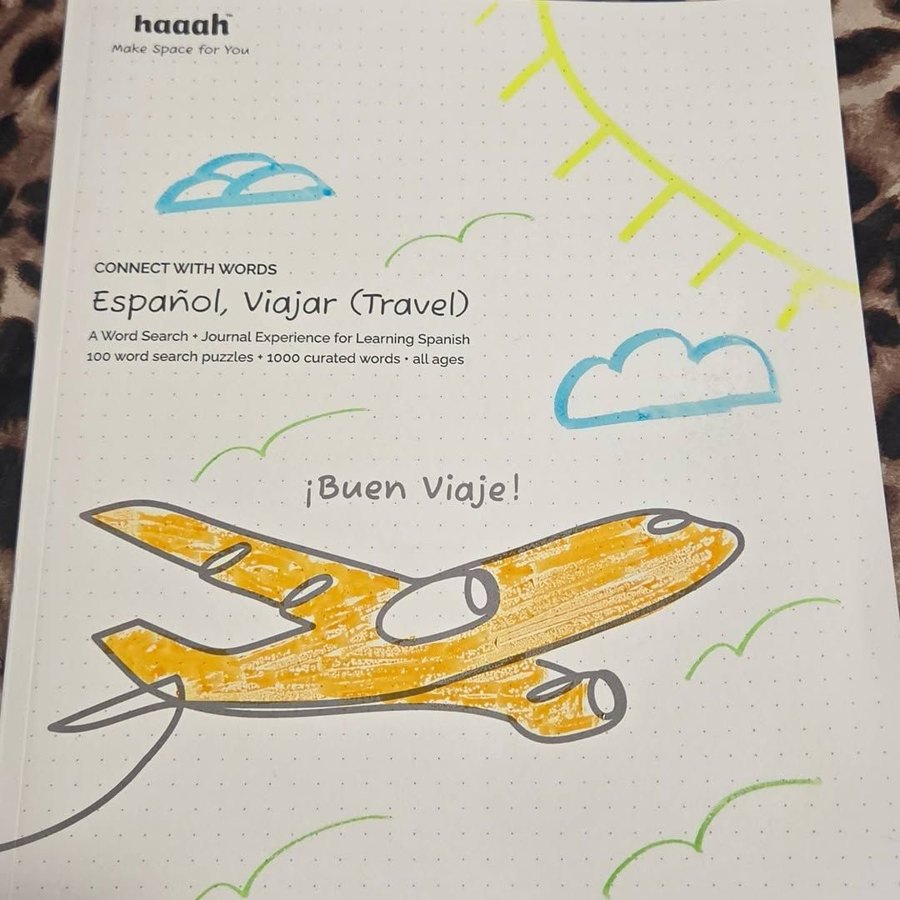 haaah™
Make Space for You
CONNECT WITH WORDS
Español, Viajar (Travel)
A Word Search + Journal Experience for Learning Spanish
100 word search puzzles + 1000 curated words • all ages
¡Buen Viaje!